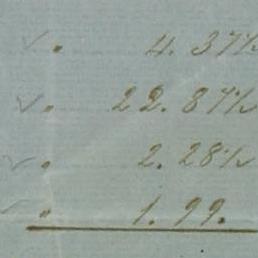 ✓ " 4. 37½
✓ " 22. 87½
✓ " 2. 28½
✓ " 1. 99.